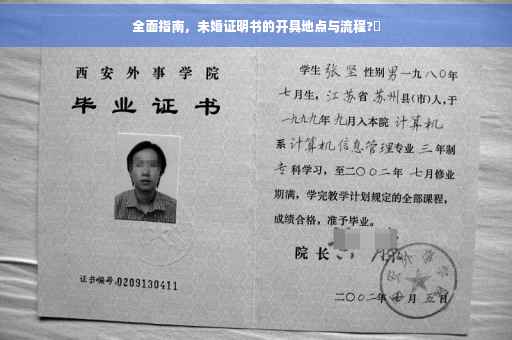 全面指南，未婚证明书的开具地点与流程?
西安外事学院
毕业证书
证书编号:0209130411
学生 张坚 性别 男 一九八〇年
七月生，江苏省 苏州 县(市)人,于
一九九九年 九月入本院 计算机
系 计算机信息管理 专业 三 年制
专科学习，至二〇〇二年 七月修业
期满，学完教学计划规定的全部课程，
成绩合格，准予毕业。
院长
二〇〇二年 月 五日